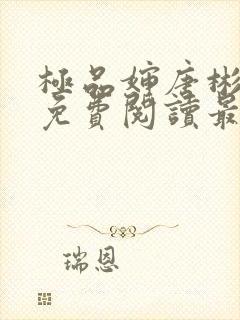 極品婶唐彬
免費閱讀最
瑞恩